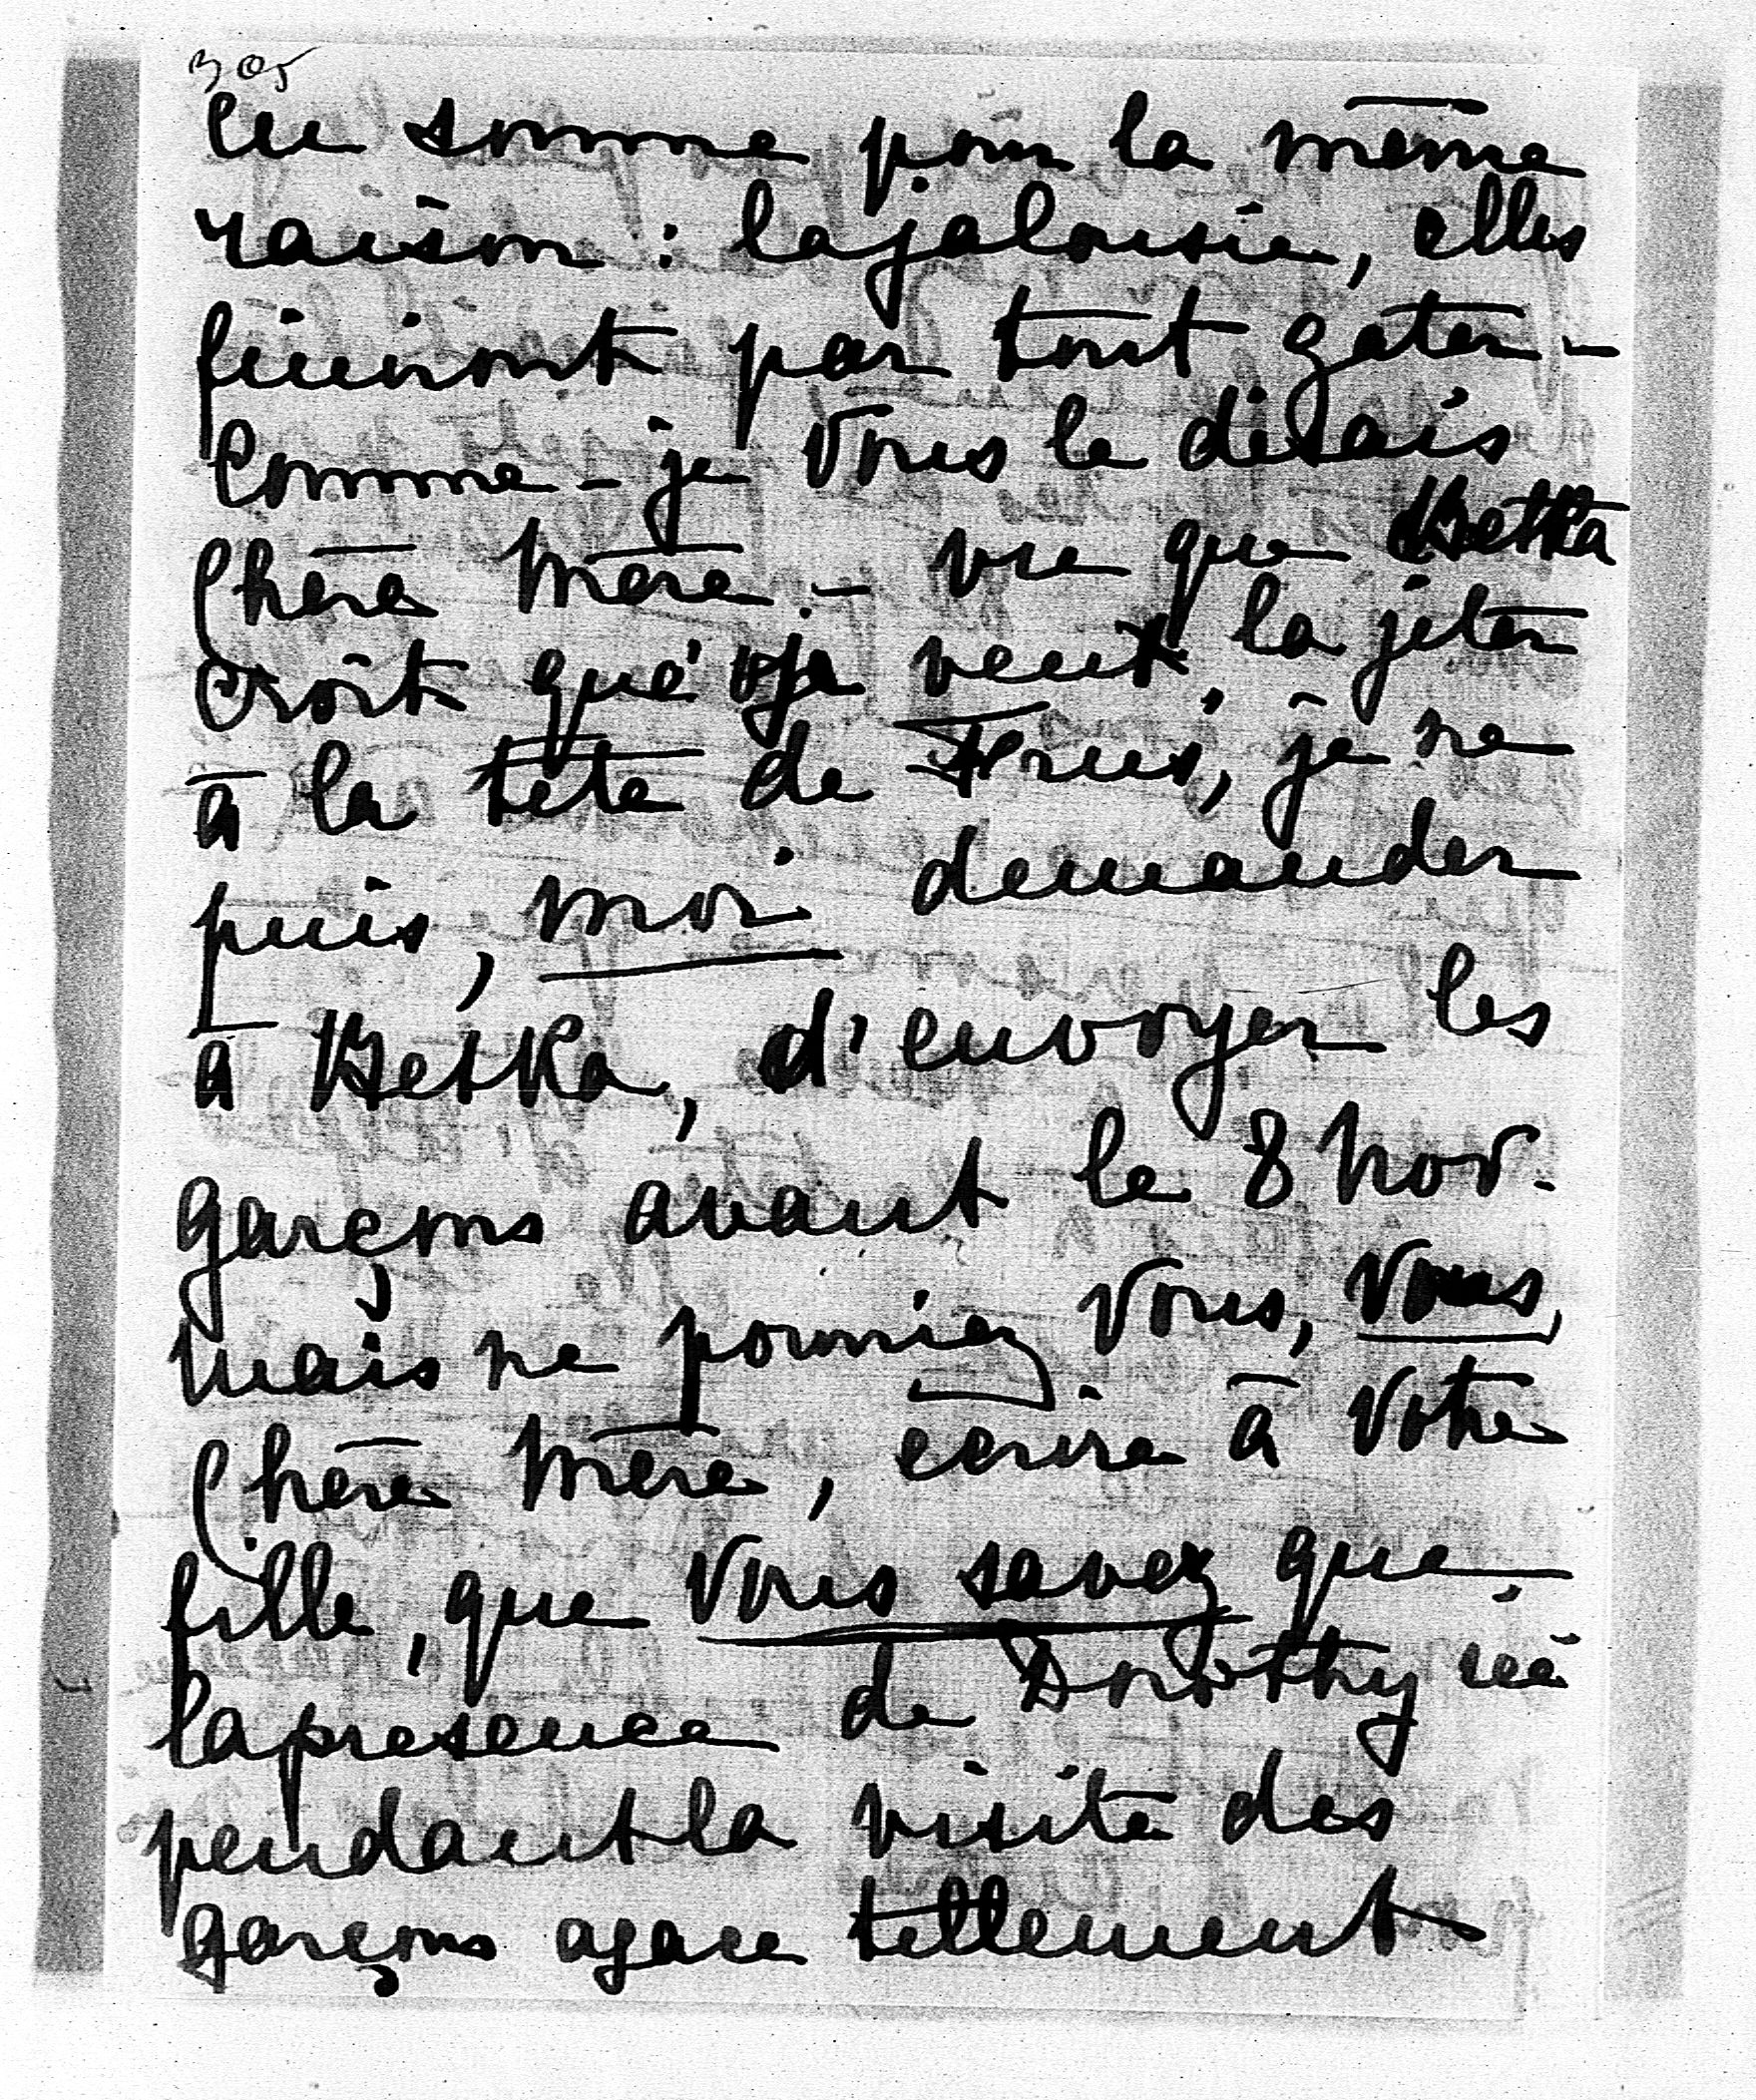 305
En somme pour la même
raison : la jalousie, elles
finiront par tout gâter -
Comme - je vous le disais
Chère Mère. - vu que Betka
croit que je veux la jeter
à la tête de, je ne
puis, moi demander
à Betka, d'envoyer les
garçons avant le 8 Nov.
mais ne pourriez Vous, Vous,
Chère Mère, écrire à Votre
fille, que Vous savez que
la présence de Dorothy ici
pendant la visite des
garçons agace tellement